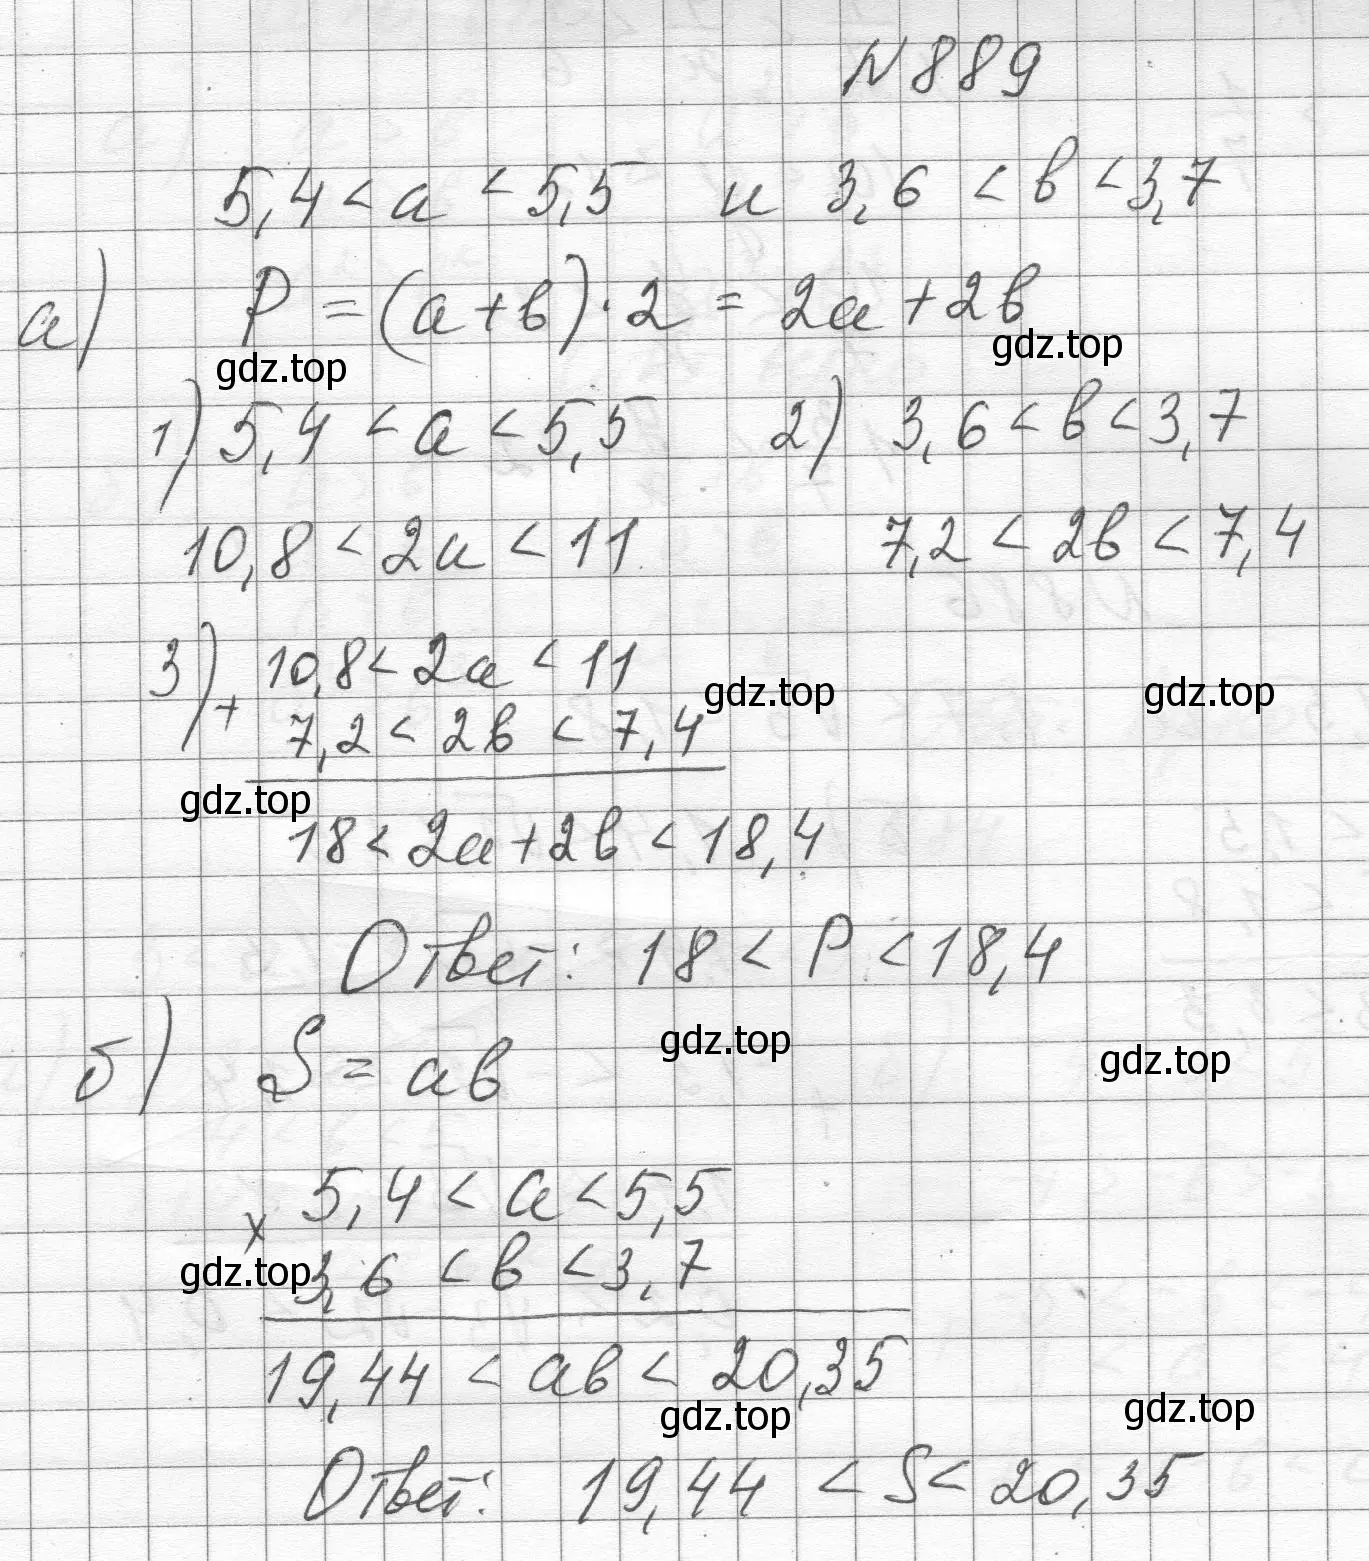 N 889
5,4 < a < 5,5 и 3,6 < b < 3,7
а) P = (a + b) · 2 = 2a + 2b
gdz.top gdz.top
1) 5,4 < a < 5,5 2) 3,6 < b < 3,7
10,8 < 2a < 11 7,2 < 2b < 7,4
3) 10,8 < 2a < 11
gdz.top gdz.top
+ 7,2 < 2b < 7,4
gdz.top
18 < 2a + 2b < 18,4
Ответ: 18 < P < 18,4
gdz.top gdz.top
б) S = ab
5,4 < a < 5,5
×
gdz.top 3,6 < b < 3,7
19,44 < ab < 20,35
gdz.top gdz.top
Ответ: 19,44 < S < 20,35